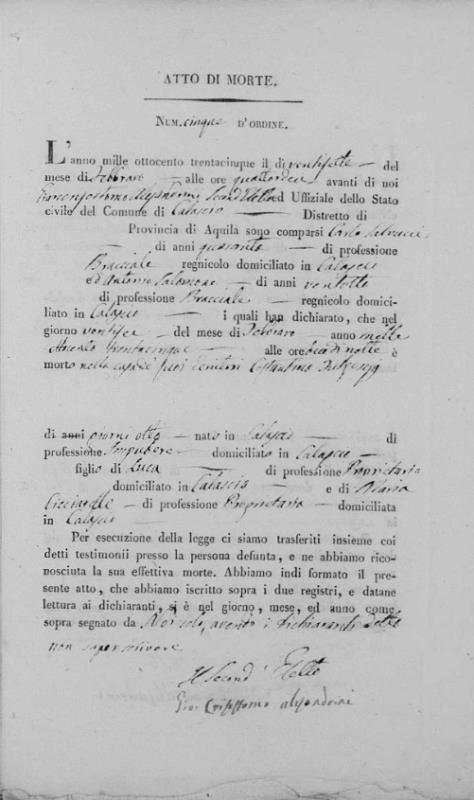 ATTO DI MORTE.
NUM. cinque D'ORDINE.
L'anno mille ottocento trentacinque il dì ventisette del
mese di Febbraro alle ore quattordici avanti di noi
Giancrisostomo Alesandrini Second'Eletto ed Uffiziale dello Stato
civile del Comune di Calascio Distretto di
Provincia di Aquila sono comparsi Carlo
di anni quaranta di professione
Bracciale regnicolo domiciliato in Calascio
ed Antonio Salomone di anni ventotto
di professione Bracciale regnicolo domici-
liato in Calascio i quali han dichiarato, che nel
giorno ventisei del mese di Febbraro anno mille
ottocento trentacinque alle ore di notte è
morto nella casa de' suoi Genitori Costantino
di anni giorni otto nato in Calascio di
professione Impubere domiciliato in Calascio
figlio di Luca di professione Proprietario
domiciliato in Calascio e di Maria
di professione Proprietaria domiciliata
in Calascio
Per esecuzione della legge ci siamo trasferiti insieme coi
detti testimonii presso la persona defunta, e ne abbiamo rico-
nosciuta la sua effettiva morte. Abbiamo indi formato il pre-
sente atto, che abbiamo iscritto sopra i due registri, e datane
lettura ai dichiaranti, si è nel giorno, mese, ed anno come
sopra segnato da Noi solo, avendo i dichiaranti detto
non saper scrivere
Il Second' Eletto
Gio: Crisostomo Alesandrini